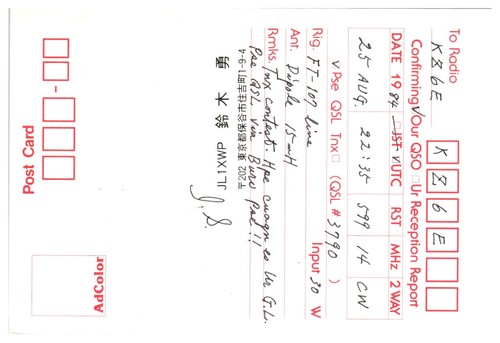 To Radio
KZ6E
K Z 6 E
Confirming ✓Our QSO □Ur Reception Report
DATE 1984 JST ✓UTC RST MHz 2 WAY
25 AUG. 22:35 599 14 CW
✓Pse QSL Tnx□ (QSL # 3790 )
Rig. FT-107 line Input 30 W
Ant. Dipole 15mH
Rmks. Tnx contest. Hpe cuagn es Ur G.L.
Pse QSL via Buro pse!!
鈴木 勇
JL1XWP
〒202 東京都保谷市住吉町1-9-4
J. S.
Post Card
AdColor